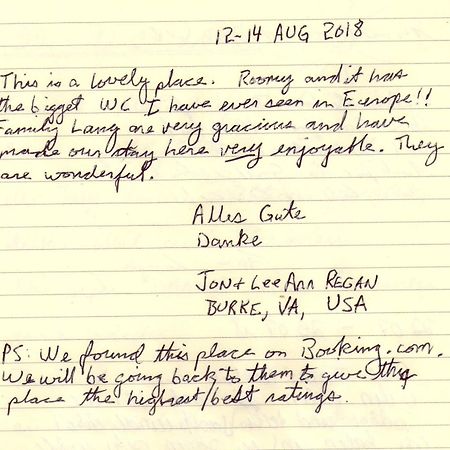 12-14 AUG 2018
This is a lovely place. Roomy and it has
the bigget WC I have ever seen in Europe!!
Family Lang are very gracious and have
made our stay here very enjoyable. They
are wonderful.
Alles Gute
Danke
Jon + LeeAnn REGAN
BURKE, VA, USA
PS: We found this place on Booking.com.
We will be going back to them to give this
place the highest/best ratings.